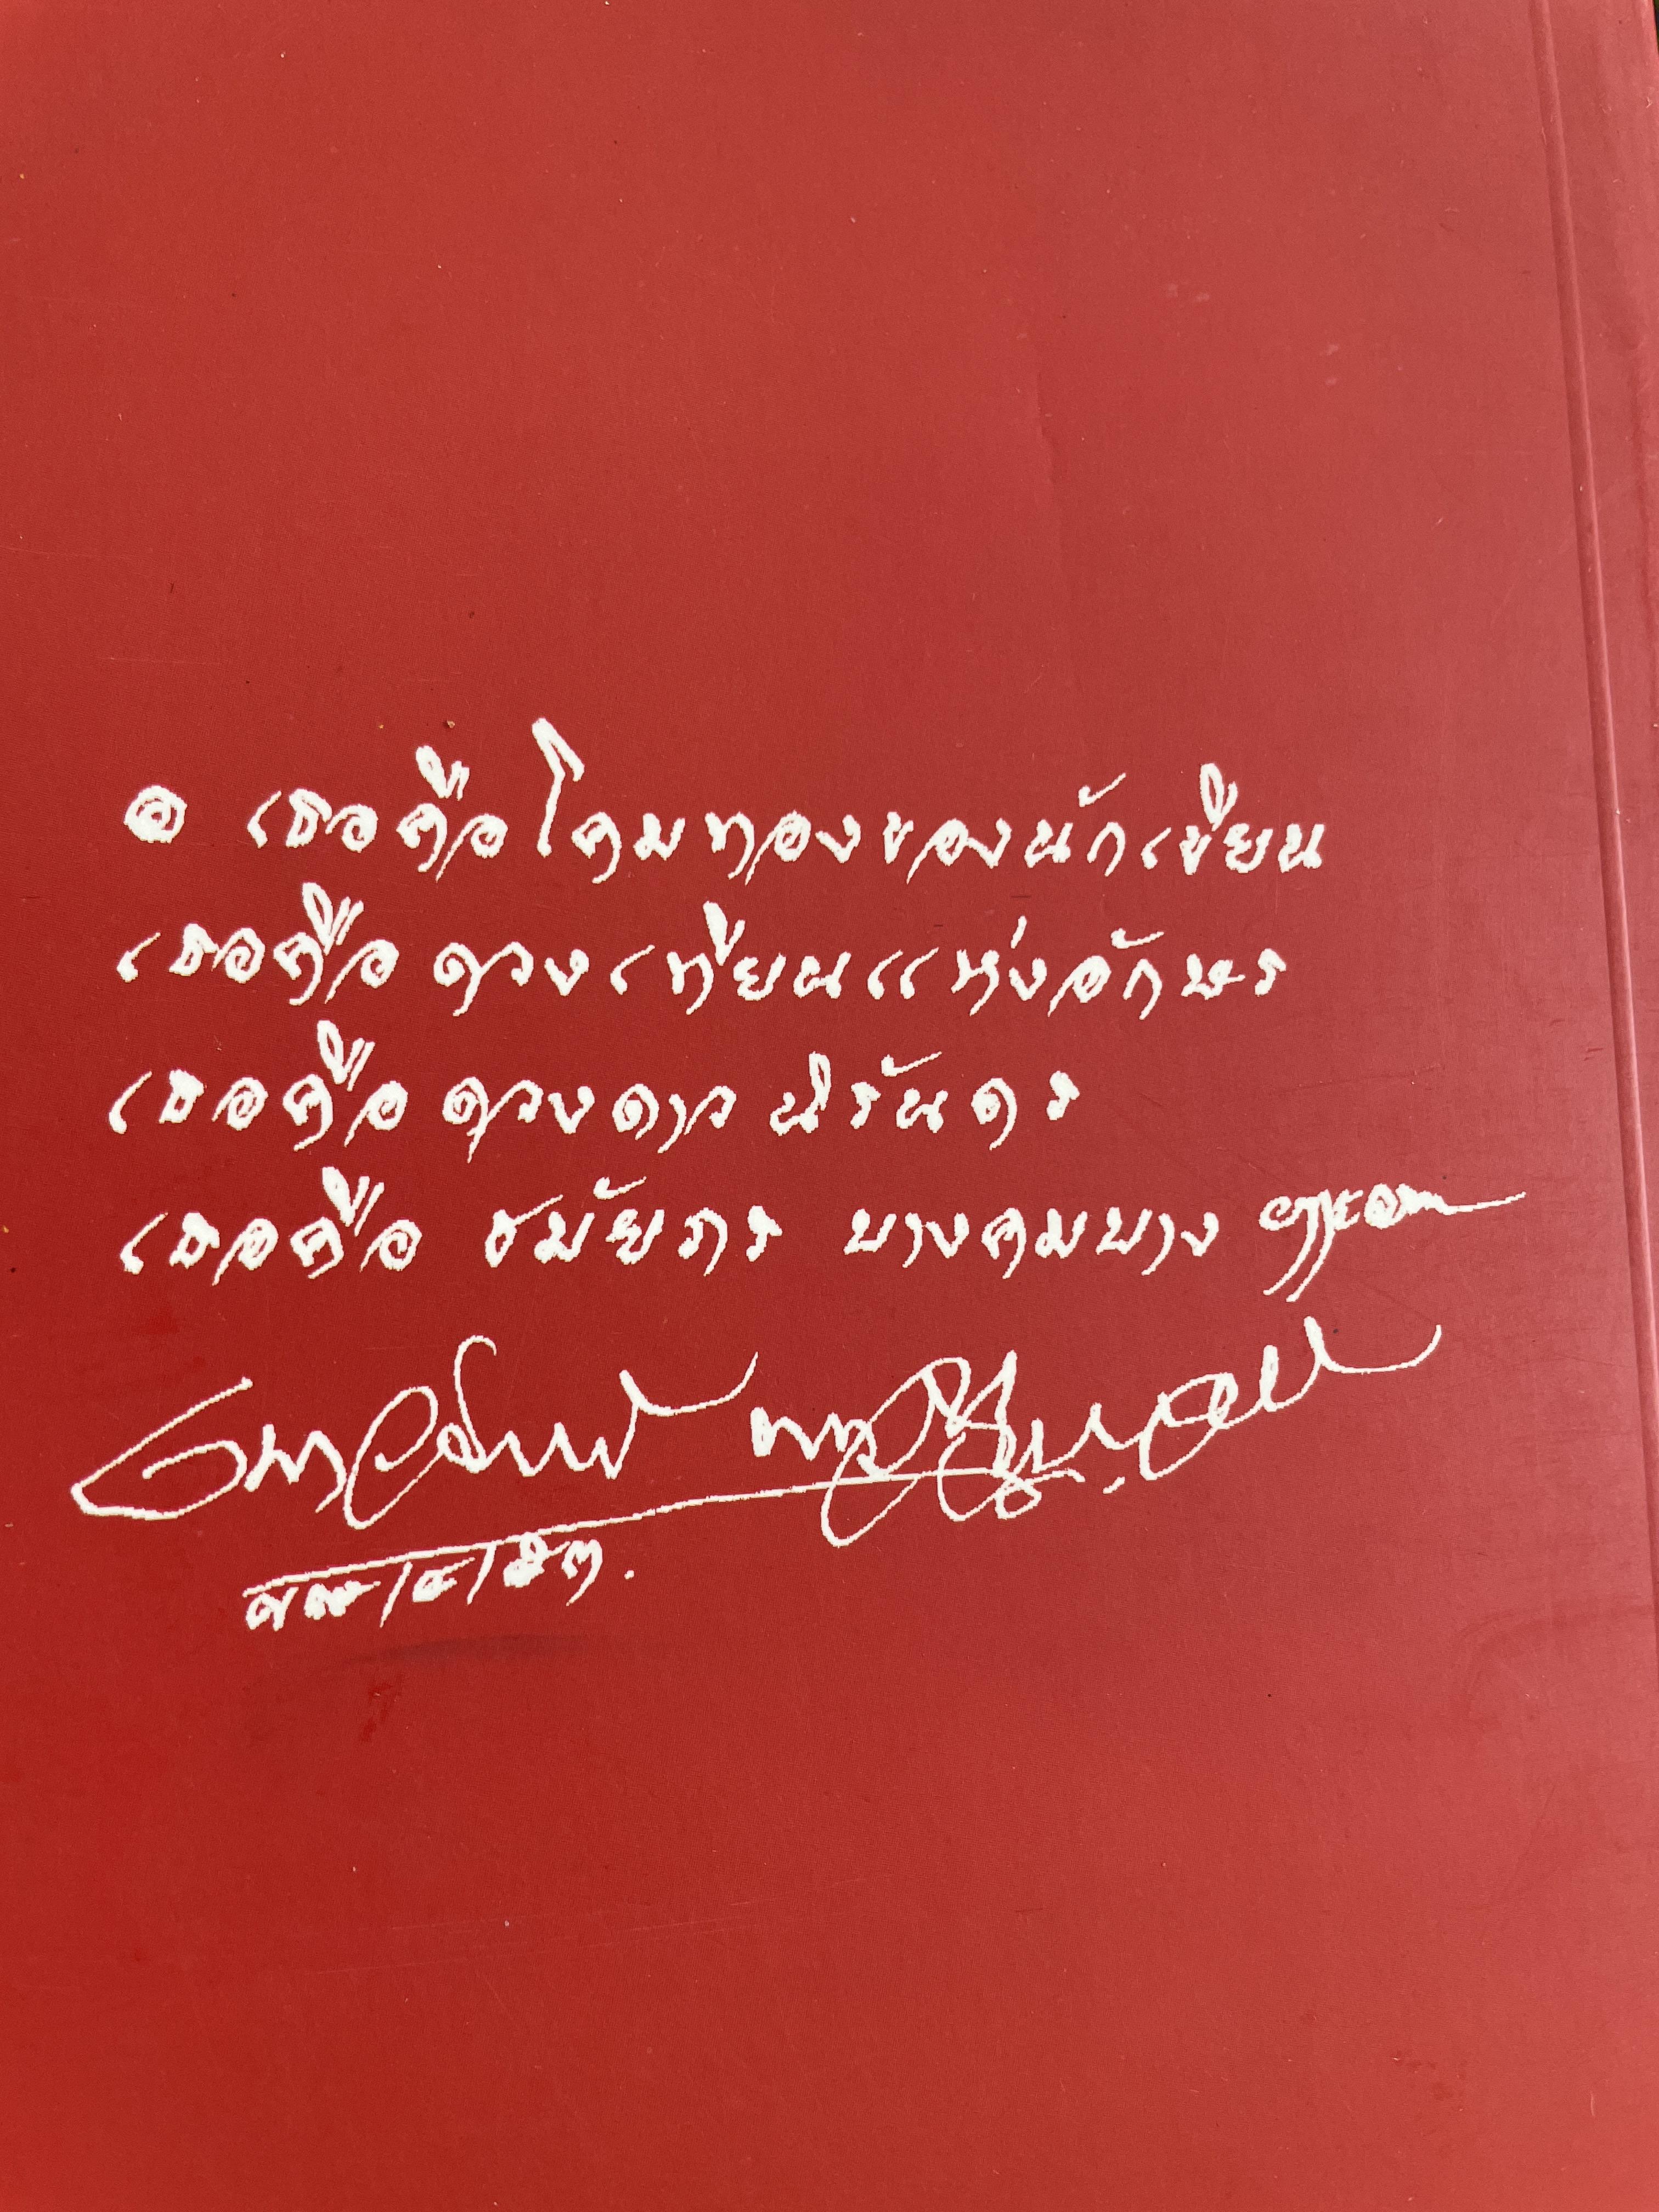 ๏ เธอคือโคมทองของนักเขียน
เธอคือ ดวงเทียนแห่งอักษร
เธอคือ ดวงดาว นิรันดร
เธอคือ ชมัยภร บางคมบาง ๚ะ๛
เนาวรัตน์ พงษ์ไพบูลย์